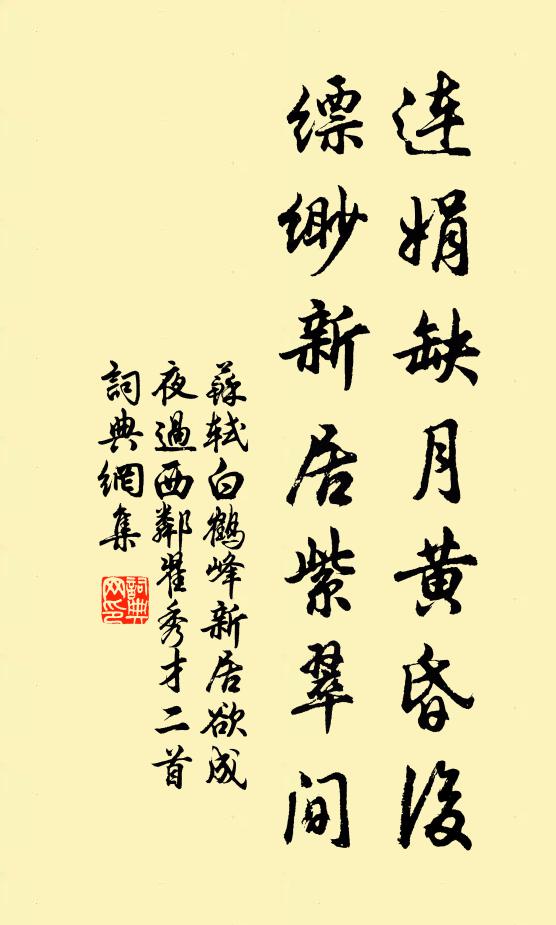 連娟缺月黃昏後
縹緲新居紫翠間
蘇軾白鶴峰新居欲成
夜過西鄰翟秀才二首
詞典網集
詞典網印